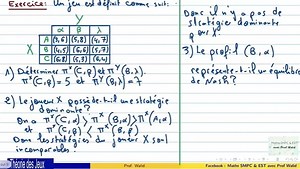 Exercice: Un jeu est définit comme suit:
Y
α β λ
X
A (7,6) (5,8) (4,7)
B (4,5) (6,5) (5,7)
C (6,8) (5,3) (6,4)
1) Déterminer π^X(C,β) et π^Y(B,λ).
π^X(C,β) = 5 et π^Y(B,λ) = 7
2) Le joueur X possède-t-il une stratégie
dominante?
On a π^X(C,α) > π^X(B,α)
π^X(A,α)
Donc les stratégies du joueur X sont
incomparables.
Donc il n'y a pas de
stratégie dominante
pour
3) Le profil (B,α)
représente-t-il un équilibre
de Nash?
Théorie des Jeux
Prof. Walid
Facebook : Maths SMPC & EST avec Prof Walid